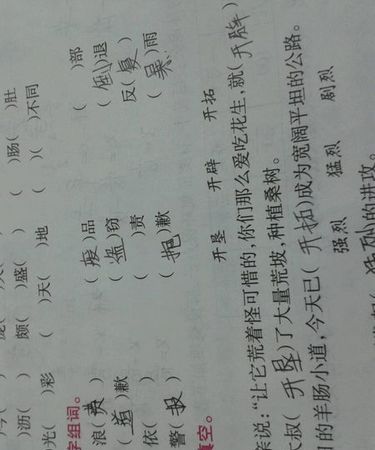 )沥( ) 颇( )盛( ) ( )肠( )肚
光( )彩 ( )天( )地 ( )( )不同
字组词。
浪(费) (废)品 ( )部
( )歉 (盗)窃 (倒)退
依( ) ( )责 反(复)
警(报) (抱)歉 ( )雨
填空。
开垦 开辟 开拓
亲说：“让它荒着怪可惜的,你们那么爱吃花生,就(开辟)
大叔(开垦)了大量荒坡,种植桑树。
的羊肠小道,今天已(开拓)成为宽阔平坦的公路。
强烈 猛烈 剧烈
猛烈的进攻。